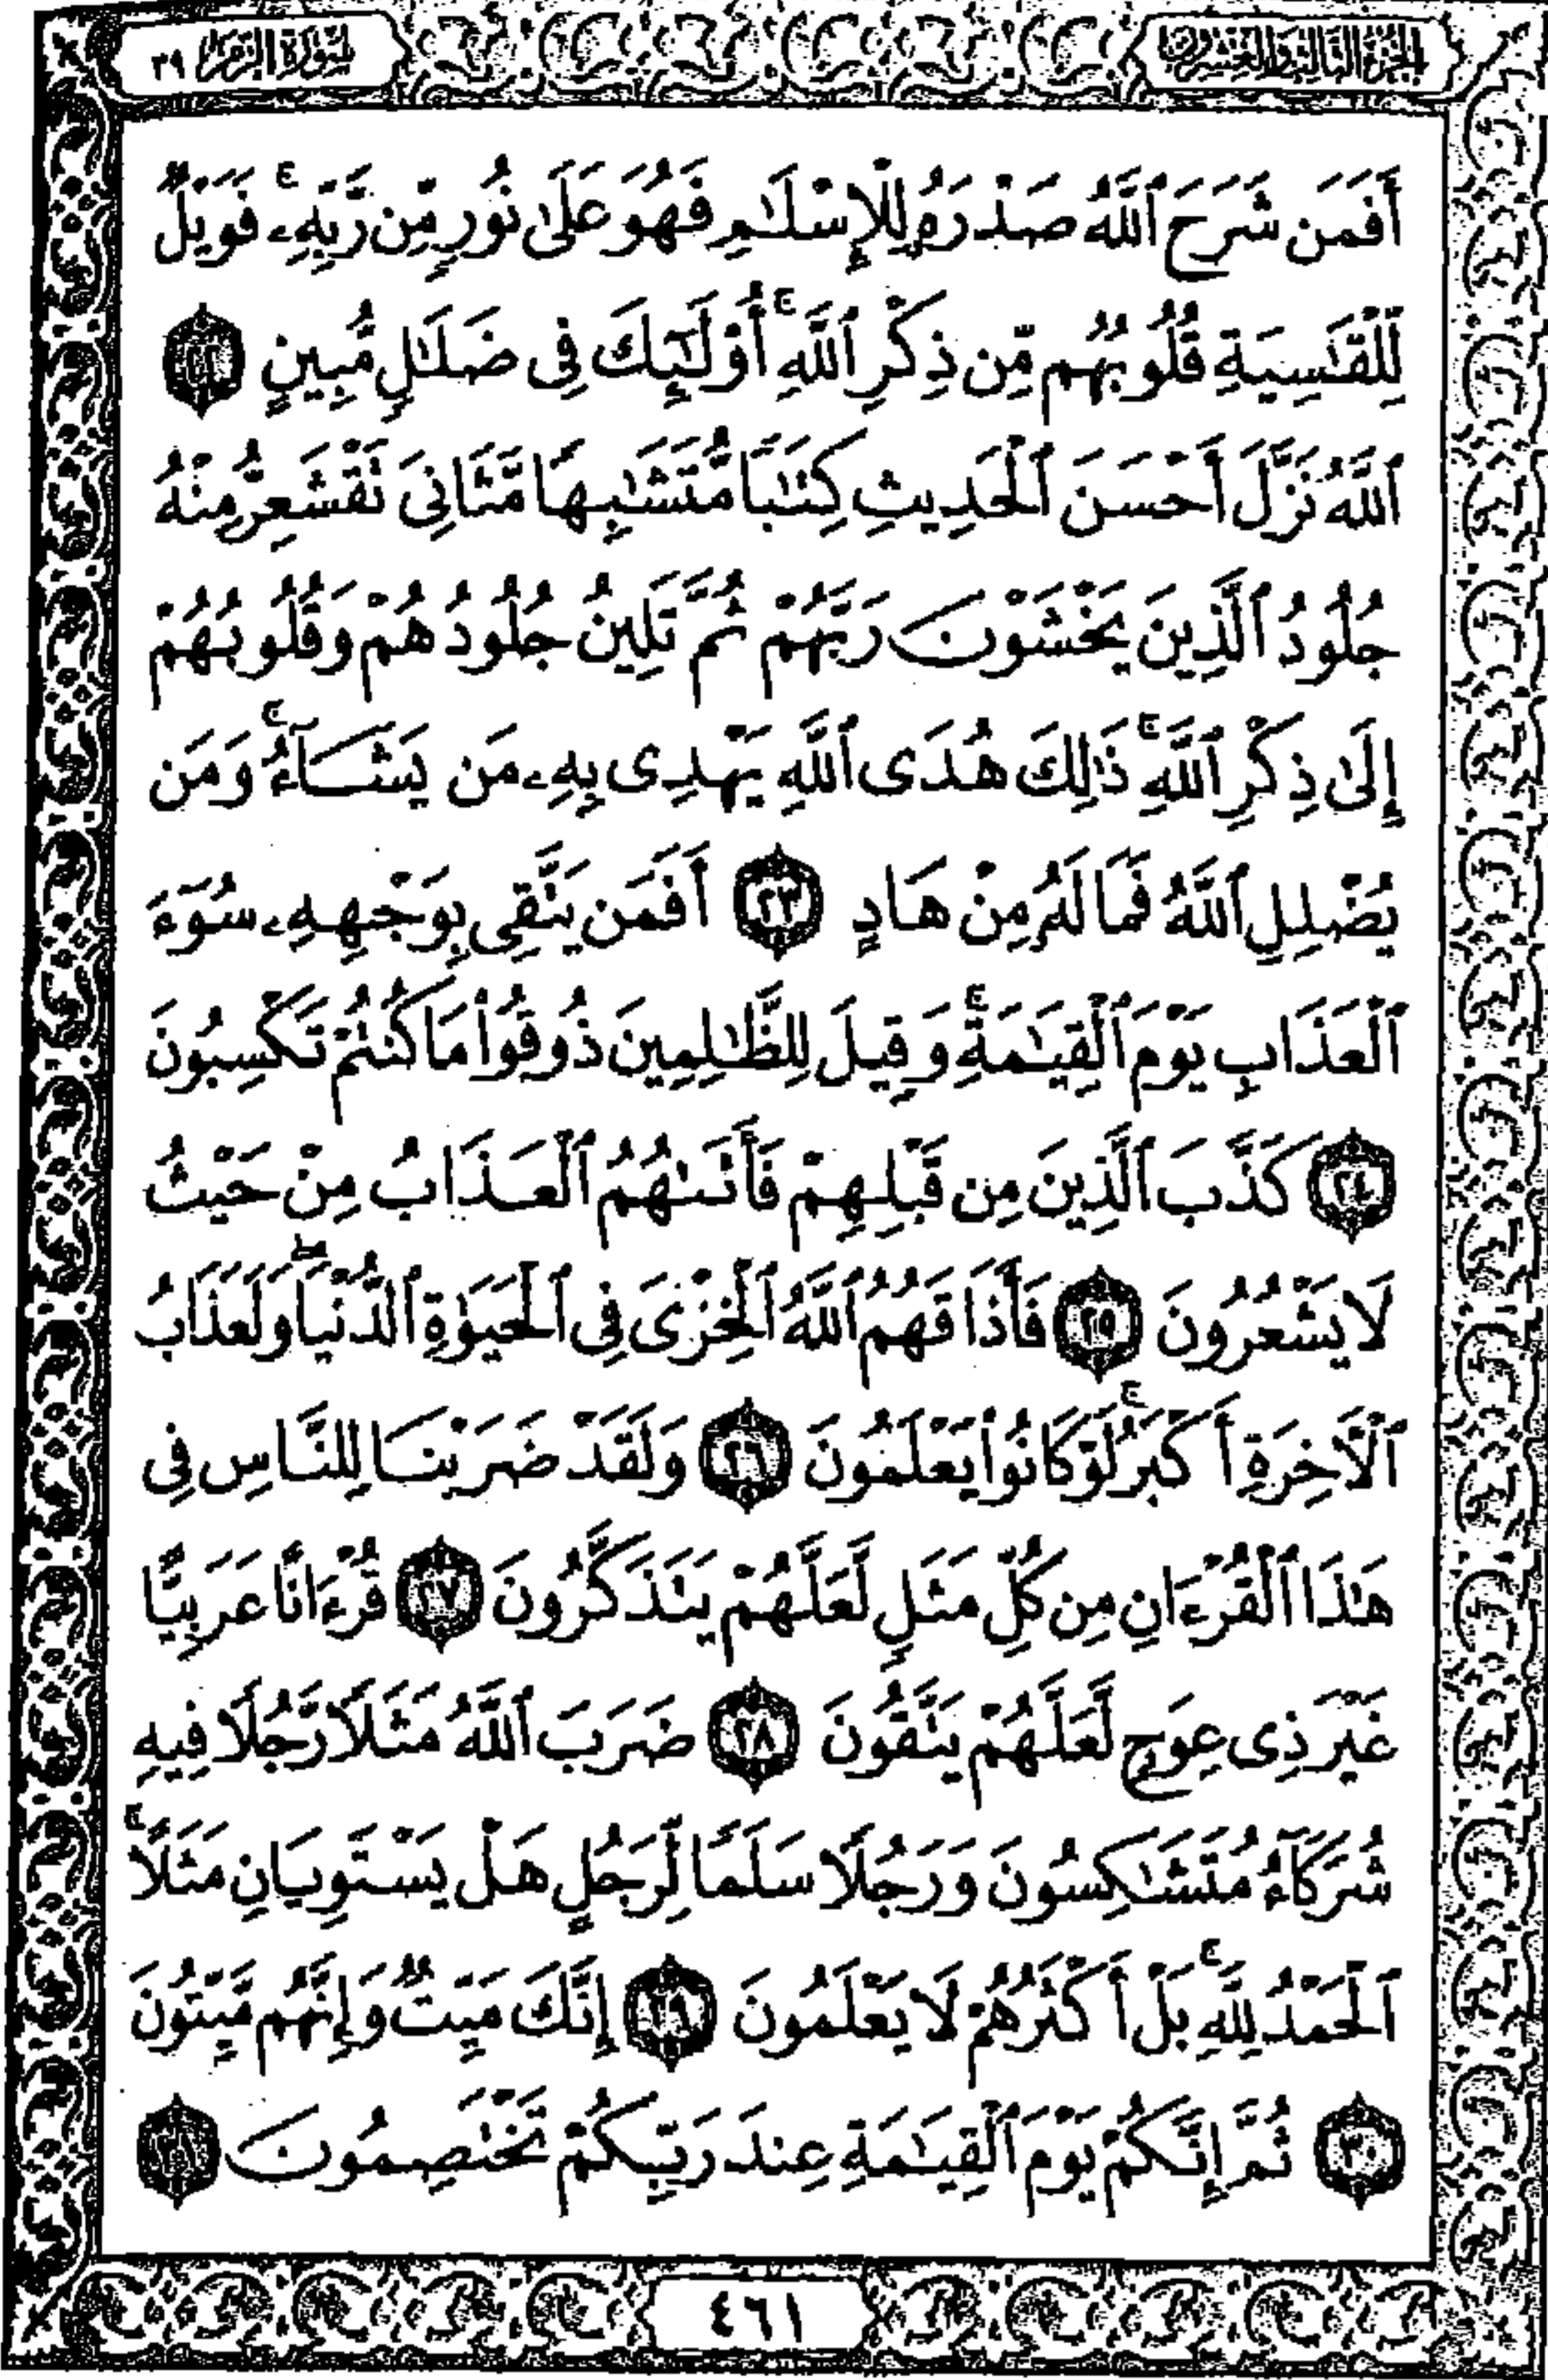 الجزء الثالث والعشرون
سورة الزمر ٣٩
أَفَمَن شَرَحَ ٱللَّهُ صَدْرَهُۥ لِلْإِسْلَٰمِ فَهُوَ عَلَىٰ نُورٍ مِّن رَّبِّهِۦ ۚ فَوَيْلٌ
لِّلْقَٰسِيَةِ قُلُوبُهُم مِّن ذِكْرِ ٱللَّهِ ۚ أُو۟لَٰٓئِكَ فِى ضَلَٰلٍ مُّبِينٍ ٢٢
ٱللَّهُ نَزَّلَ أَحْسَنَ ٱلْحَدِيثِ كِتَٰبًا مُّتَشَٰبِهًا مَّثَانِىَ تَقْشَعِرُّ مِنْهُ
جُلُودُ ٱلَّذِينَ يَخْشَوْنَ رَبَّهُمْ ثُمَّ تَلِينُ جُلُودُهُمْ وَقُلُوبُهُمْ
إِلَىٰ ذِكْرِ ٱللَّهِ ۚ ذَٰلِكَ هُدَى ٱللَّهِ يَهْدِى بِهِۦ مَن يَشَآءُ ۚ وَمَن
يُضْلِلِ ٱللَّهُ فَمَا لَهُۥ مِنْ هَادٍ ٢٣ أَفَمَن يَتَّقِى بِوَجْهِهِۦ سُوٓءَ
ٱلْعَذَابِ يَوْمَ ٱلْقِيَٰمَةِ ۚ وَقِيلَ لِلظَّٰلِمِينَ ذُوقُوا۟ مَا كُنتُمْ تَكْسِبُونَ
٢٤ كَذَّبَ ٱلَّذِينَ مِن قَبْلِهِمْ فَأَتَىٰهُمُ ٱلْعَذَابُ مِنْ حَيْثُ
لَا يَشْعُرُونَ ٢٥ فَأَذَاقَهُمُ ٱللَّهُ ٱلْخِزْىَ فِى ٱلْحَيَوٰةِ ٱلدُّنْيَا ۖ وَلَعَذَابُ
ٱلْءَاخِرَةِ أَكْبَرُ ۚ لَوْ كَانُوا۟ يَعْلَمُونَ ٢٦ وَلَقَدْ ضَرَبْنَا لِلنَّاسِ فِى
هَٰذَا ٱلْقُرْءَانِ مِن كُلِّ مَثَلٍ لَّعَلَّهُمْ يَتَذَكَّرُونَ ٢٧ قُرْءَانًا عَرَبِيًّا
غَيْرَ ذِى عِوَجٍ لَّعَلَّهُمْ يَتَّقُونَ ٢٨ ضَرَبَ ٱللَّهُ مَثَلًا رَّجُلًا فِيهِ
شُرَكَآءُ مُتَشَٰكِسُونَ وَرَجُلًا سَلَمًا لِّرَجُلٍ هَلْ يَسْتَوِيَانِ مَثَلًا ۚ
ٱلْحَمْدُ لِلَّهِ ۚ بَلْ أَكْثَرُهُمْ لَا يَعْلَمُونَ ٢٩ إِنَّكَ مَيِّتٌ وَإِنَّهُم مَّيِّتُونَ
٣٠ ثُمَّ إِنَّكُمْ يَوْمَ ٱلْقِيَٰمَةِ عِندَ رَبِّكُمْ تَخْتَصِمُونَ ٣١
٤٦١